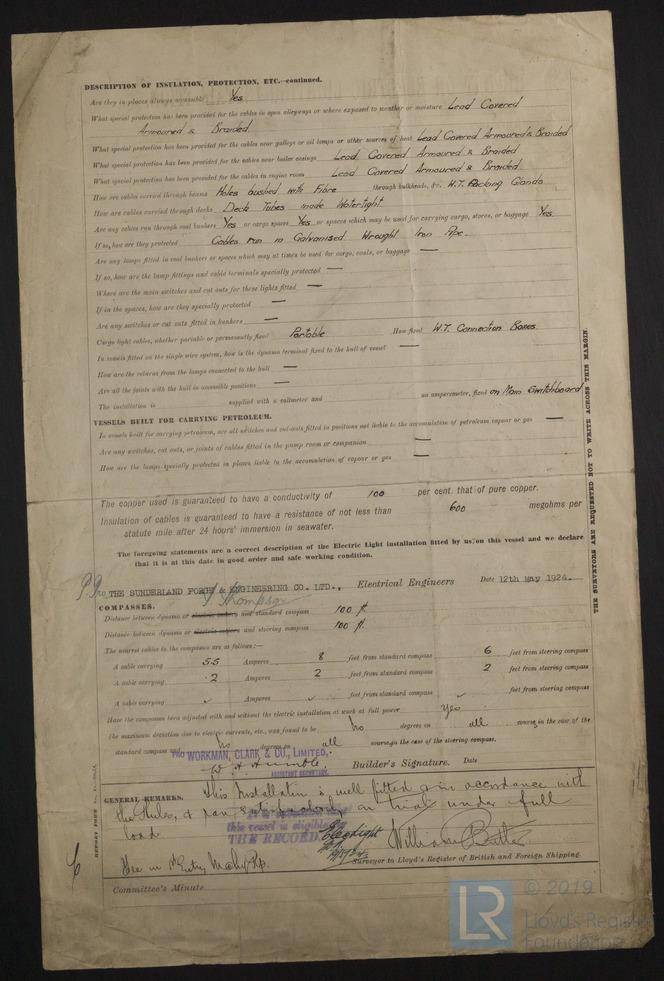 DESCRIPTION OF INSULATION, PROTECTION, ETC.—continued.
Are they in places always accessible Yes
What special protection has been provided for the cables in open alleyways or where exposed to weather or moisture Lead Covered
Armoured & Braided
What special protection has been provided for the cables near galleys or oil lamps or other sources of heat Lead Covered Armoured & Braided
What special protection has been provided for the cables near boiler casings Lead Covered Armoured & Braided
What special protection has been provided for the cables in engine room Lead Covered Armoured & Braided
How are cables carried through beams Holes bushed with Fibre through bulkheads, &c. W.T. Packing Glands
How are cables carried through decks Deck Tubes made Watertight
Are any cables run through coal bunkers Yes or cargo spaces Yes or spaces which may be used for carrying cargo, stores, or baggage Yes
If so, how are they protected Cables run in Galvanised Wrought Iron Pipe
Are any lamps fitted in coal bunkers or spaces which may at times be used for cargo, coals, or baggage —
If so, how are the lamp fittings and cable terminals specially protected —
Where are the main switches and cut outs for these lights fitted —
If in the spaces, how are they specially protected —
Are any switches or cut outs fitted in bunkers —
Cargo light cables, whether portable or permanently fixed Portable How fixed W.T. Connection Boxes
In vessels fitted on the single wire system, how is the dynamo terminal fixed to the hull of vessel —
How are the returns from the lamps connected to the hull —
Are all the joints with the hull in accessible positions —
The installation is supplied with a voltmeter and an amperemeter, fixed on Main Switchboard
VESSELS BUILT FOR CARRYING PETROLEUM.
In vessels built for carrying petroleum, are all switches and cut-outs fitted in positions not liable to the accumulation of petroleum vapour or gas —
Are any switches, cut outs, or joints of cables fitted in the pump room or companion —
How are the lamps specially protected in places liable to the accumulation of vapour or gas —
The copper used is guaranteed to have a conductivity of 100 per cent. that of pure copper.
Insulation of cables is guaranteed to have a resistance of not less than 600 megohms per
statute mile after 24 hours' immersion in seawater.
The foregoing statements are a correct description of the Electric Light installation fitted by us on this vessel and we declare
that it is at this date in good order and safe working condition.
P. Pro THE SUNDERLAND FORGE & ENGINEERING CO. LTD., Electrical Engineers Date 12th May 1924.
J. Thompson
COMPASSES.
Distance between dynamo or electric motors and standard compass 100 ft.
Distance between dynamo or electric motors and steering compass 100 ft.
The nearest cables to the compasses are as follows:—
A cable carrying 5.5 Amperes 8 feet from standard compass 6 feet from steering compass
A cable carrying .2 Amperes 2 feet from standard compass 2 feet from steering compass
A cable carrying Amperes feet from standard compass feet from steering compass
Have the compasses been adjusted with and without the electric installation at work at full power Yes
The maximum deviation due to electric currents, etc., was found to be No degrees on all course in the case of the
standard compass and No degrees on all course in the case of the steering compass.
PRO WORKMAN, CLARK & CO., LIMITED,
Builder's Signature. Date
ASSISTANT SECRETARY.
GENERAL REMARKS. This Installation is well fitted & in accordance with
the Rules, & ran satisfactorily on trials under full
load.
this vessel is eligible
THE RECORD
Elec Light
Surveyor to Lloyd's Register of British and Foreign Shipping.
Committee's Minute
THE SURVEYORS ARE REQUESTED NOT TO WRITE ACROSS THIS MARGIN.
LR
© 2019
Lloyd's Register
Foundation